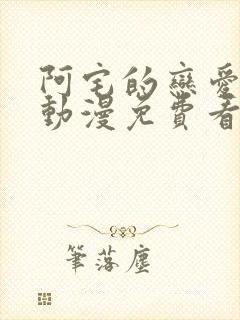 阿宅的戀愛
動漫免費看
筆落塵